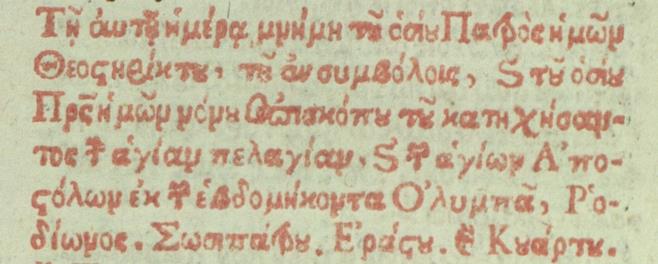 Τῇ αὐτῇ ἡμέρᾳ μνήμη τοῦ ὁσίου Πατρὸς ἡμῶν
Θεοστηρίκτου, τοῦ ἐν συμβόλοις, ϗ τοῦ ὁσίου
Πρς̃ ἡμῶν νόνου Ἐπισκόπου τοῦ κατηχήσαν-
τος τ̃ ἁγίαν πελαγίαν. ϗ τ̃ ἁγίων Ἀπο-
ϛόλων ἐκ τ̃ ἑβδομήκοντα Ὀλυμπᾶ, Ῥο-
δίωνος. Σωσιπάτρου. Ἐράϛου. ϗ Κουάρτου.